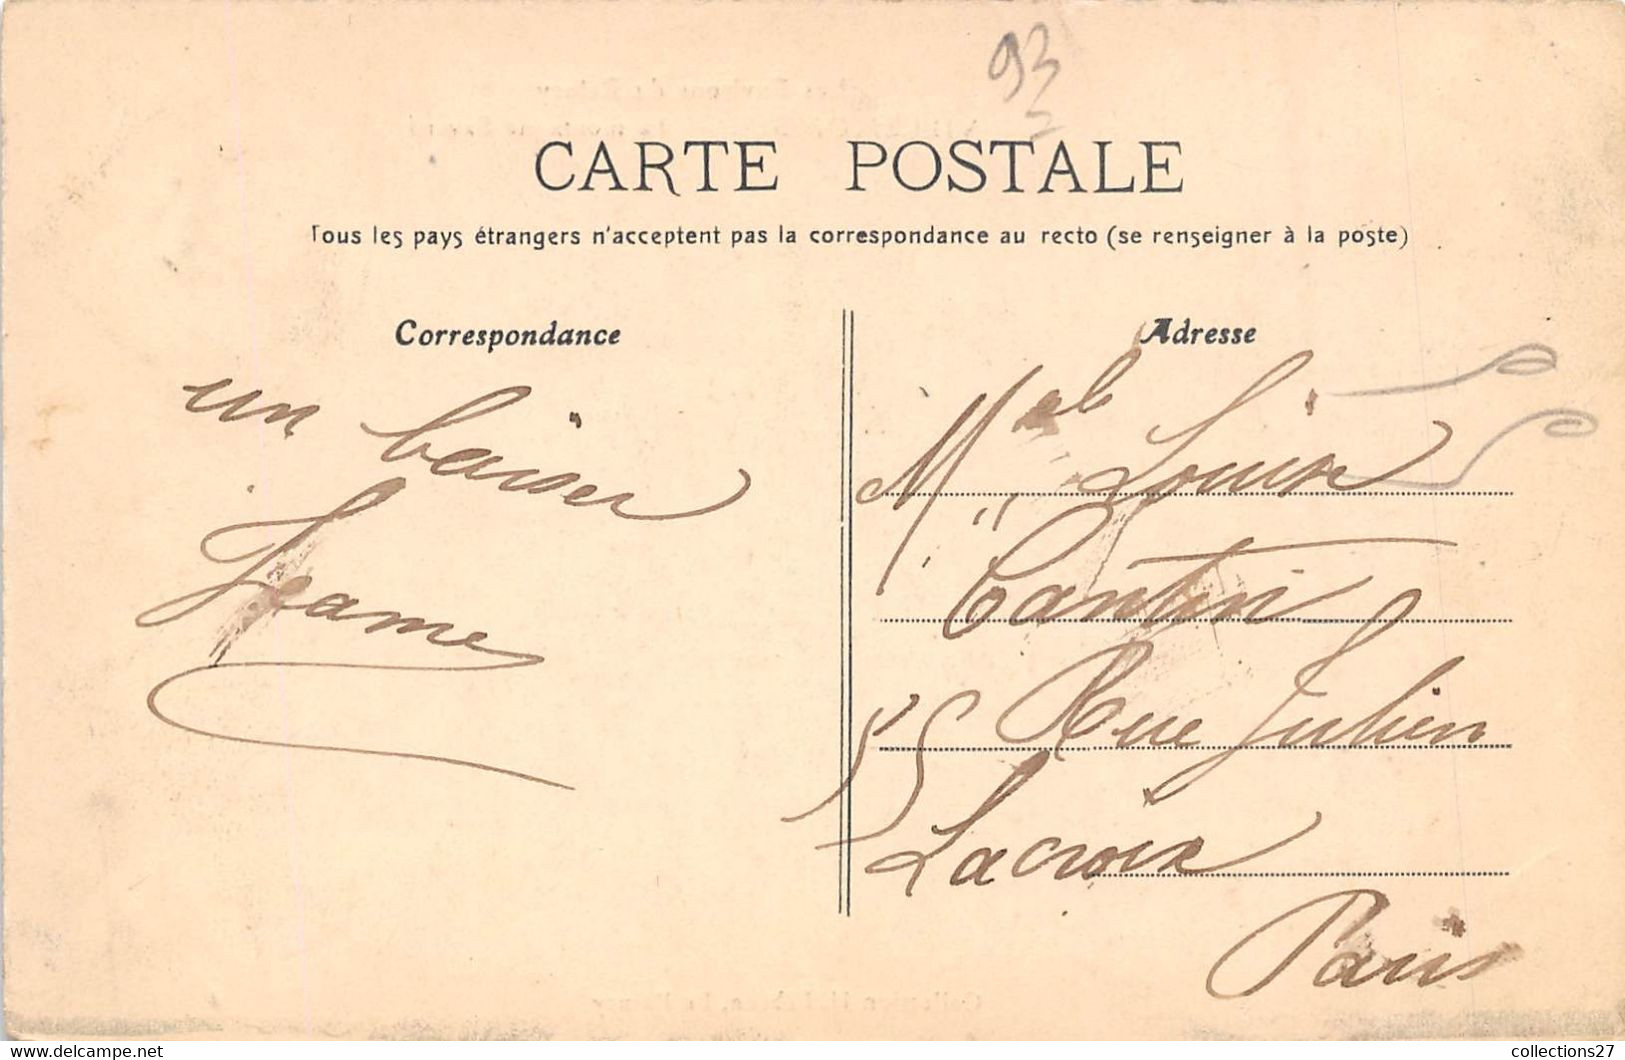 93
CARTE POSTALE
Tous les pays étrangers n'acceptent pas la correspondance au recto (se renseigner à la poste)
Correspondance
un baiser
Jeanne
Adresse
Louise
Cantin
55 Rue Julien
Lacroix
Paris
collections27